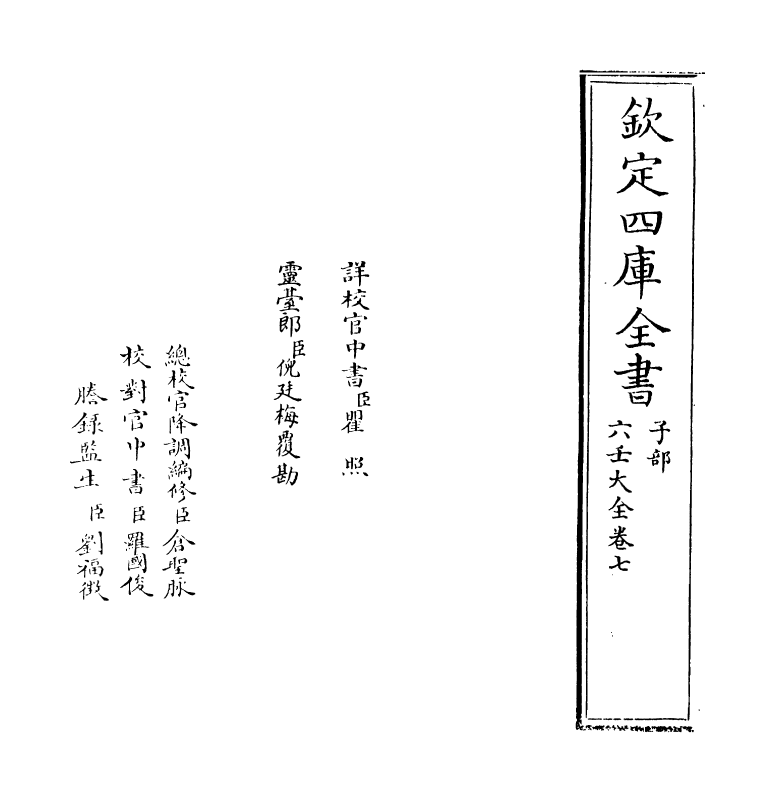 欽定四庫全書
子部
六壬大全卷七
詳校官中書臣瞿照
靈臺郎臣倪廷梅覆勘
總校官降調編修臣倉聖脉
校對官中書臣羅國俊
謄錄監生臣劉福徴